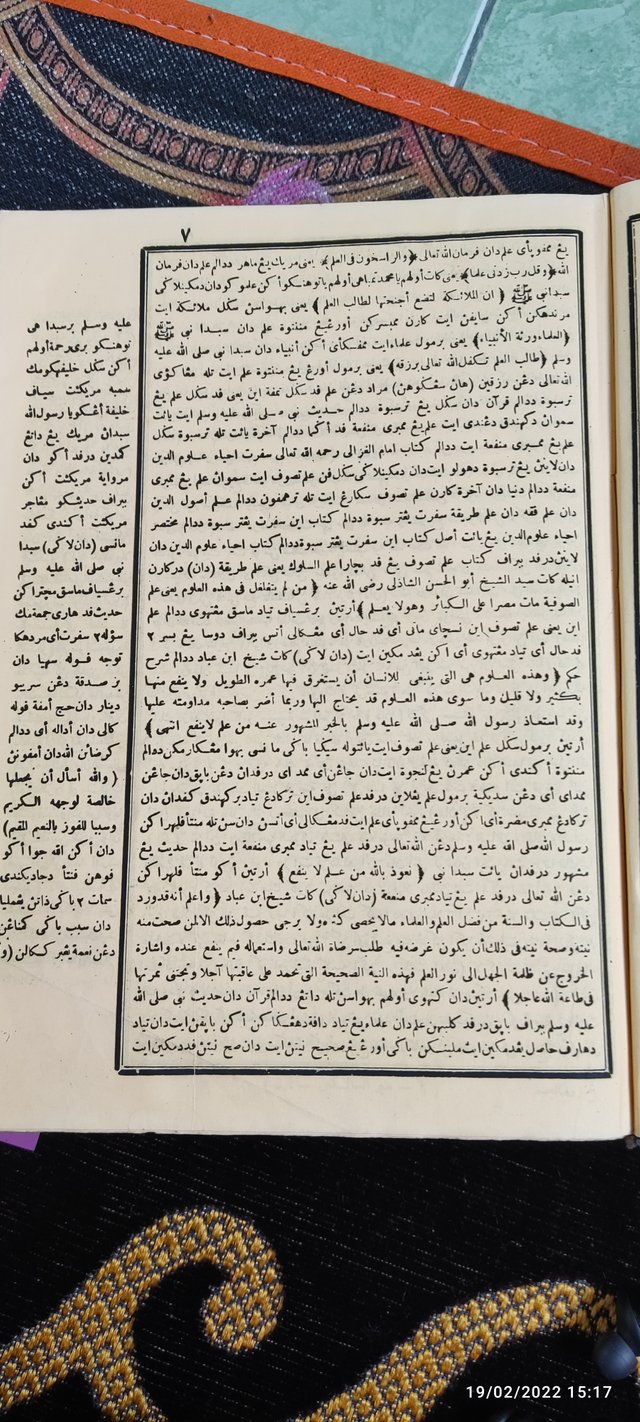 ٧
يڠ ممفوڽأي علم دان فرمان الله تعالى ﴿والراسخون في العلم﴾ يعني مريك يڠ ماهر ددالم علم دان فرمان
الله ﴿وقل رب زدني علما﴾ يعني كات أولهم يا محمد تمباهي أولهم يا توهنكو أكن علموكو دان دمكينلاكي
سبدا نبي ﷺ ﴿ان الملائكة لتضع أجنحتها لطالب العلم﴾ يعني بهواسن سكل ملائكة ايت
مرندهكن أكن سايفن ايت كارن ممبسركن أورڠ يڠ مننتوة علم دان سبدا نبي ﷺ
﴿العلماء ورثة الأنبياء﴾ يعني برمول علماء ايت ممفسكأي أكن أنبياء دان سبدا نبي صلى الله عليه
وسلم ﴿طالب العلم تكفل الله تعالى برزقه﴾ يعني برمول أورڠ يڠ مننتوة علم ايت تله
الله تعالى دڠن رزقين مراد دڠن علم قد سكل تمفة اين يعني قد سكل علم يڠ
ترسبوة ددالم قرآن دان سكل يڠ ترسبوة ددالم حديث نبي صلى الله عليه وسلم ايت يائت
سموان دكهندق دڠندي ايت علم يڠ ممبري منفعة قد أكما ددالم آخرة يائت تله ترسبوة سكل
علم يڠ ممبري منفعة ايت ددالم كتاب امام الغزالي رحمه الله تعالى سفرت احياء علوم الدين
دان لاينن يڠ ترسبوة دهولو ايت دان دمكينلاكي سكل فن علم تصوف ايت سموان علم يڠ ممبري
منفعة ددالم دنيا دان آخرة كارن علم تصوف سكارڠ ايت تله ترهمفون ددالم علم أصول الدين
دان علم فقه دان علم طريقة سفرت يڠتر سبوة ددالم كتاب اين سفرت يڠتر سبوة ددالم مختصر
احياء علوم الدين يڠ يائت أصل كتاب اين سفرت يڠتر سبوة ددالم كتاب احياء علوم الدين دان
لاينن درفد ببراف كتاب علم تصوف يڠ قد بچارا علم السلوك يعني علم طريقة (دان) دركارن
ايله كات سيد الشيخ أبو الحسن الشاذلي رضي الله عنه ﴿من لم يتغلغل في هذه العلوم يعني علم
الصوفية مات مصرا على الكبائر وهو لا يعلم﴾ أرتين برڠسياف تياد ماسق مڠتهوي ددالم علم
اين يعني علم تصوف اين نسچاي ماتي أي قد حال أي مڠكالي أتس ببراف دوسا يڠ بسر ٢
قد حال أي تياد مڠتهوي أي أكن يڠد مكين ايت (دان لاكي) كات شيخ ابن عباد ددالم شرح
حكم ﴿وهذه العلوم هي التي ينبغي للانسان أن يستغرق فيها عمره الطويل ولا ينفع منها
بكثير ولا قليل وما سوى هذه العلوم قد يحتاج اليها وربما أضر بصاحبه مداومته عليها
وقد استعاذ رسول الله صلى الله عليه وسلم بالخبر المشهور عنه من علم لا ينفع انتهى﴾
أرتين برمول سكل علم اين يعني علم تصوف ايت يائتوله سيكيا باكي مانسي بهوا مڠكاركن ددالم
مننتوة أكندي أكن عمرن يڠ لنجوة ايت دان جاڠن أي ممد اي درفدان دڠن بايق دان جاڠن
ممداي أي دڠن سديكية برمول علم يڠلاين درفد علم تصوف اين تركادڠ تياد بركهندق كفدان دان
تركادڠ ممبري مضرة أي اكن أورڠ يڠ ممفوڽأي علم ايت قد مڠكالي أي أتسن دان سڽ تله منتأ فليهرا كن
رسول الله صلى الله عليه وسلم دڠن الله تعالى درفد علم يڠ تياد ممبري منفعة ايت ددالم حديث يڠ
مشهور درفدان يائت سبدا نبي ﴿نعوذ بالله من علم لا ينفع﴾ أرتين أكو منتأ فليهرا كن
دڠن الله تعالى درفد علم يڠ تياد ممبري منفعة (دان لاكي) كات شيخ ابن عباد ﴿واعلم أنه قد ورد
في الكتاب والسنة من فضل العلم والعلماء ما لا يحصى كثرة ولا يرجى حصول ذلك الا لمن صحت منه
نيته وصحة نيته في ذلك أن يكون غرضه فيه طلب مرضاة الله تعالى واستعماله فيم ينفع عنده واشارة
الخروج عن ظلمة الجهل الى نور العلم فهذه النية الصحيحة التي تحمد على عاقبتها آجلا وتجتنى ثمرتها
في طاعة الله عاجلا﴾ أرتين دان كتهوي أولهم بهواسن تله داتڠ ددالم قرآن دان حديث نبي صلى الله
عليه وسلم ببراف بايق درفد كلبيهن علم دان علماء يڠ تياد دافة دهڠكاكن أكن بايقن ايت دان تياد
دهارف حاصل يڠد مكين ايت ملينكن باكي أورڠ يڠ صحيح نيتن ايت دان صح نيتن قد دمكين ايت
عليه وسلم برسبدا هي
توهنكو بري رحمة أولهم
أكن سكل خليفهكو مك
سمبه مريكئت سياف
خليفة أڠكو يا رسول الله
سبدان مريك يڠ داتڠ
كمدين درفد أكو دان
مرواية مريكئت أكن
ببراف حديثكو مڠاجر
مريكئت أكندي كفد
مانسي (دان لاكي) سبدا
نبي صلى الله عليه وسلم
برڠسياف ماسق مچتراكن
حديث قد هاري جمعة مك
سؤله٢ سفرت أي مردهكا
توجه فوله سهيا دان
برصدقة دڠن سريبو
دينار دان حج أمفة فوله
كالي دان أداله أي ددالم
كرضائن الله دان أمفونن
(والله أسأل أن يجعلها
خالصة لوجهه الكريم
وسببا للفوز بالنعيم المقيم)
دان أكن الله جوا أكو
فوهن فنتأ دجاديكندي
سمات ٢ باكي ذاتن يڠمليا
دان سبب باكي كمناڠن
دڠن نعمة يڠبر ككالن (و
19/02/2022 15:17